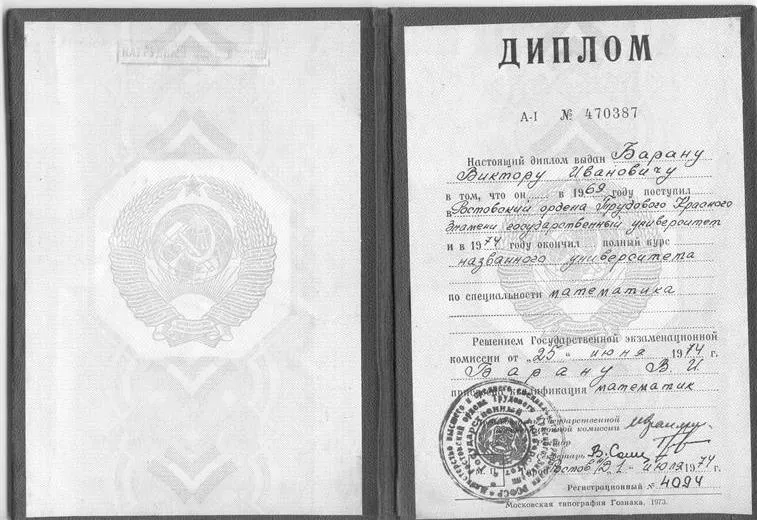 ДИПЛОМ
А-I № 470387
Настоящий диплом выдан Барану
Виктору Ивановичу
в том, что он в 1969 году поступил
в Ростовский ордена Трудового Красного
Знамени государственный университет
и в 1974 году окончил полный курс
названного университета
по специальности математика
Решением Государственной экзаменационной
комиссии от „25“ июня 1974 г.
Барану В. И.
квалификация математик
Государственной
комиссии
М. П.
1 июля 1974 г.
Регистрационный № 4094
Московская типография Гознака, 1973.